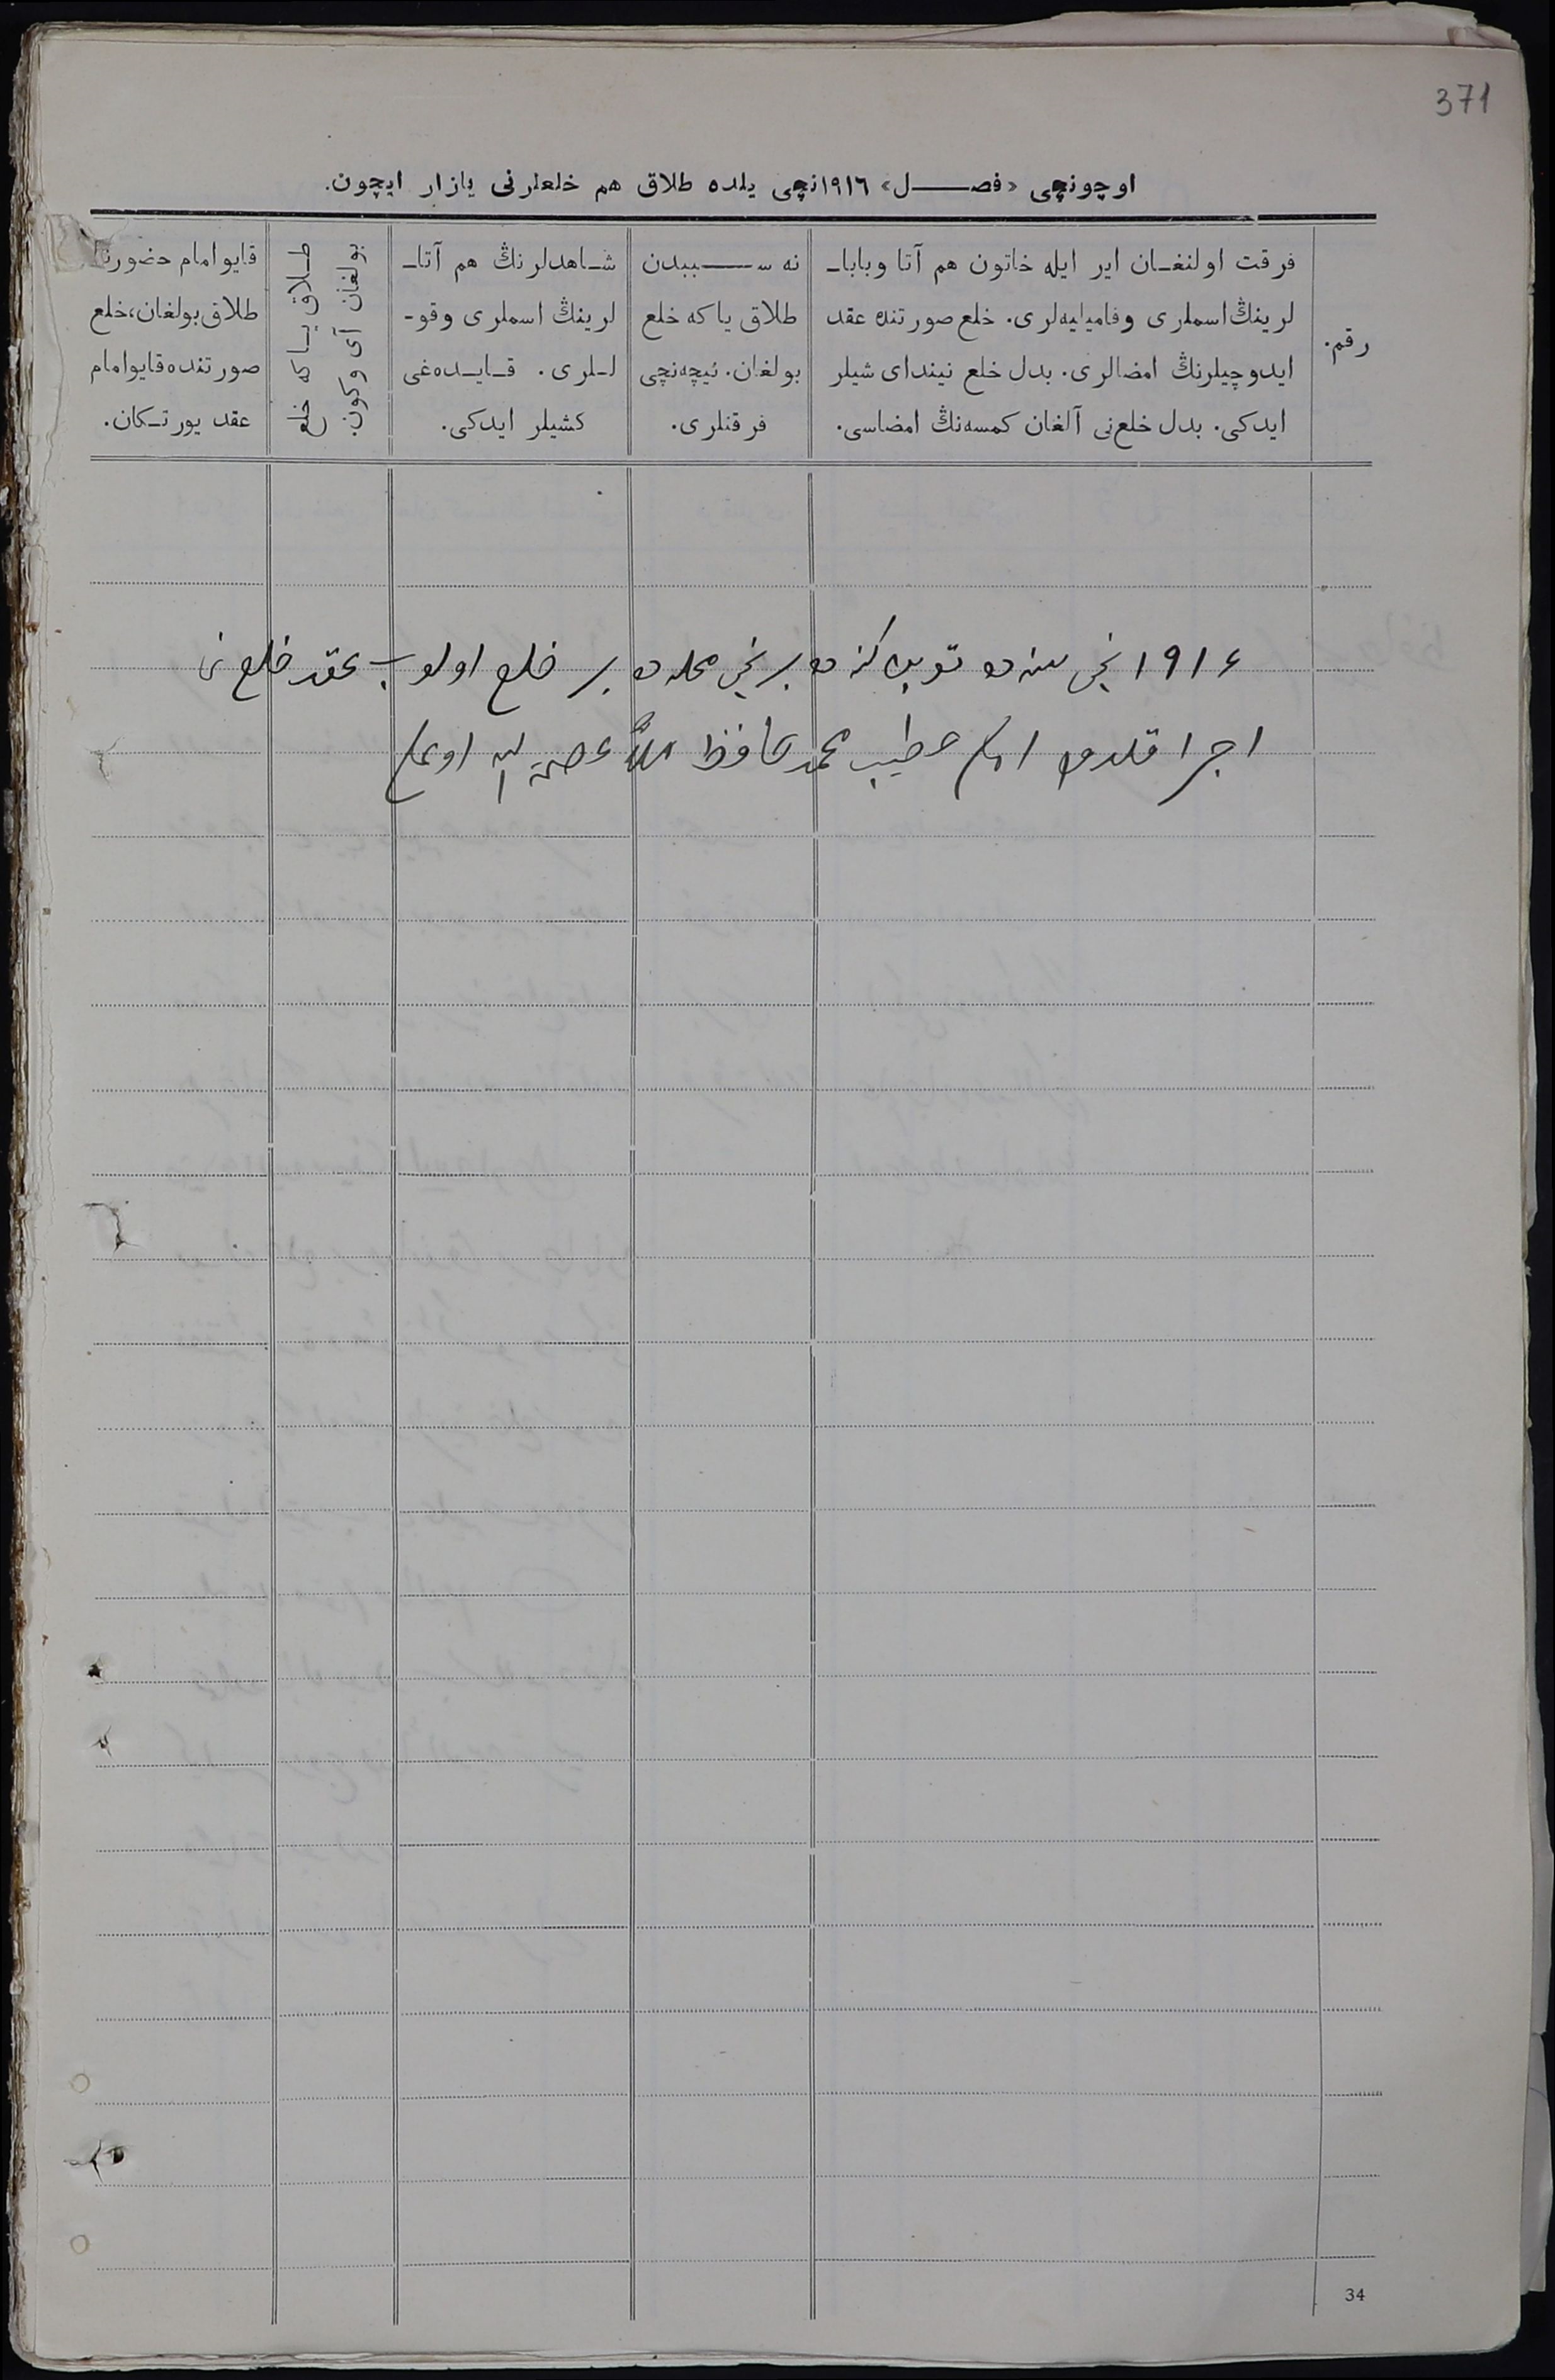 371
اوچونچی «فصل» ١٩١٦نچی یلده طلاق هم خلعلرنی یازار ایچون.
رقم.
فرقت اولنغان ایر ایله خاتون هم آتا وبابا-
لرینڭ اسملری وفامیلیه‌لری. خلع صورتنده عقد
ایدوچیلرنڭ امضالری. بدل خلع نیندای شیلر
ایدکی. بدل خلع‌نی آلغان کمسه‌نڭ امضاسی.
نه سببدن
طلاق یاکه خلع
بولغان. نیچه‌نچی
فرقتلری.
شاهدلرنڭ هم آتا-
لرینڭ اسملری وقو-
للری. قایده‌غی
کشیلر ایدکی.
طلاق یاکه خلع
بولغان آی وکون.
قایو امام حضورنا
طلاق بولغان، خلع
صورتنده قایو امام
عقد یورتکان.
١٩١٦ نچی سنه ده برنچی محله ده بر خلع اولوب عقد خلع نی
اجرا قلدم امام خطیب محمد حافظ ملا اوغلی
34